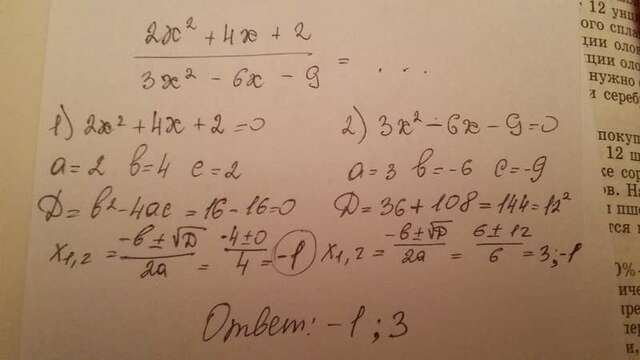 2x² + 4x + 2
3x² - 6x - 9 = ...
1) 2x² + 4x + 2 = 0
a = 2 b = 4 c = 2
D = b² - 4ac = 16 - 16 = 0
x₁,₂ = (-b ± √D)/2a = (-4 ± 0)/4 = -1
2) 3x² - 6x - 9 = 0
a = 3 b = -6 c = -9
D = 36 + 108 = 144 = 12²
x₁,₂ = (-b ± √D)/2a = (6 ± 12)/6 = 3; -1
Ответ: -1; 3
12 унц
ого спла
ции оло
ции оло
нужно
и сереб
покуп
12 ш
ке сор
ов. На
0%